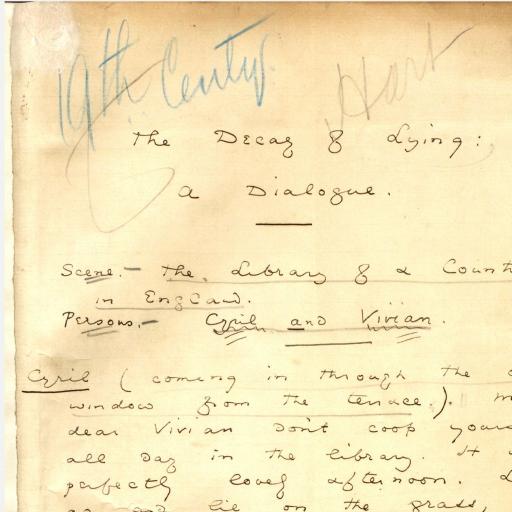 19th Centy.
Hart
The Decay of Lying:
a Dialogue.
Scene. – The Library of a Count
in England.
Persons. – Cyril and Vivian.
Cyril (coming in through the
window from the terrace.).
dear Vivian Don't coop yours
all Day in the library. It
perfectly lovely afternoon.
go and lie on the grass,